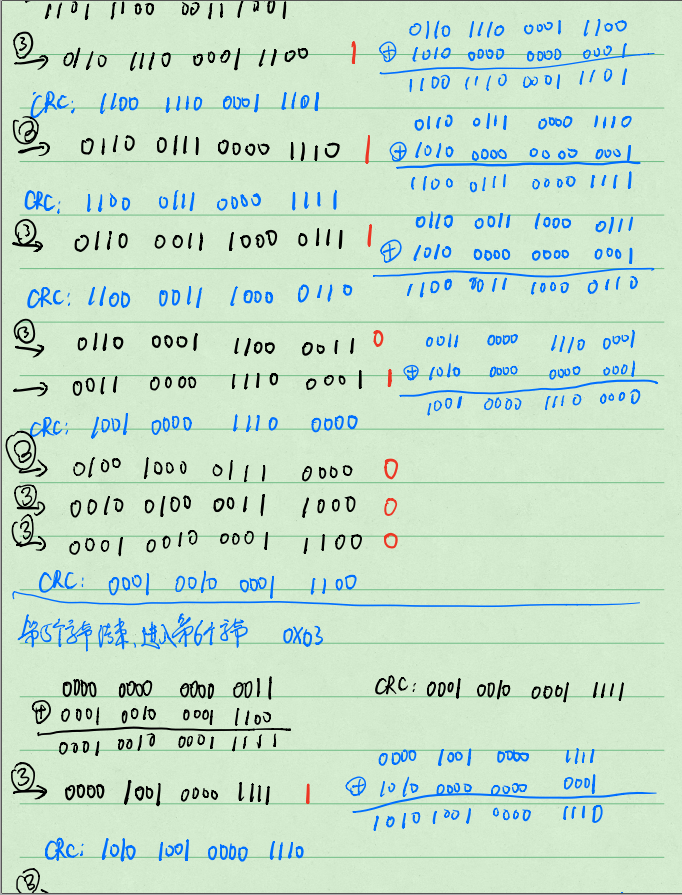 ③→ 0110 1110 0001 1100 1
0110 1110 0001 1100
⊕ 1010 0000 0000 0001
1100 1110 0001 1101
CRC: 1100 1110 0001 1101
③→ 0110 0111 0000 1110 1
0110 0111 0000 1110
⊕ 1010 0000 0000 0001
1100 0111 0000 1111
CRC: 1100 0111 0000 1111
③→ 0110 0011 1000 0111 1
0110 0011 1000 0111
⊕ 1010 0000 0000 0001
1100 0011 1000 0110
CRC: 1100 0011 1000 0110
③→ 0110 0001 1100 0011 0
→ 0011 0000 1110 0001 1
0011 0000 1110 0001
⊕ 1010 0000 0000 0001
1001 0000 1110 0000
CRC: 1001 0000 1110 0000
③→ 0100 1000 0111 0000 0
③→ 0010 0100 0011 1000 0
③→ 0001 0010 0001 1100 0
CRC: 0001 0010 0001 1100
第5个字节结束,进入第6个字节 0X03
0000 0000 0000 0011
⊕ 0001 0010 0001 1100
0001 0010 0001 1111
CRC: 0001 0010 0001 1111
③→ 0000 1001 0000 1111 1
0000 1001 0000 1111
⊕ 1010 0000 0000 0001
1010 1001 0000 1110
CRC: 1010 1001 0000 1110
③